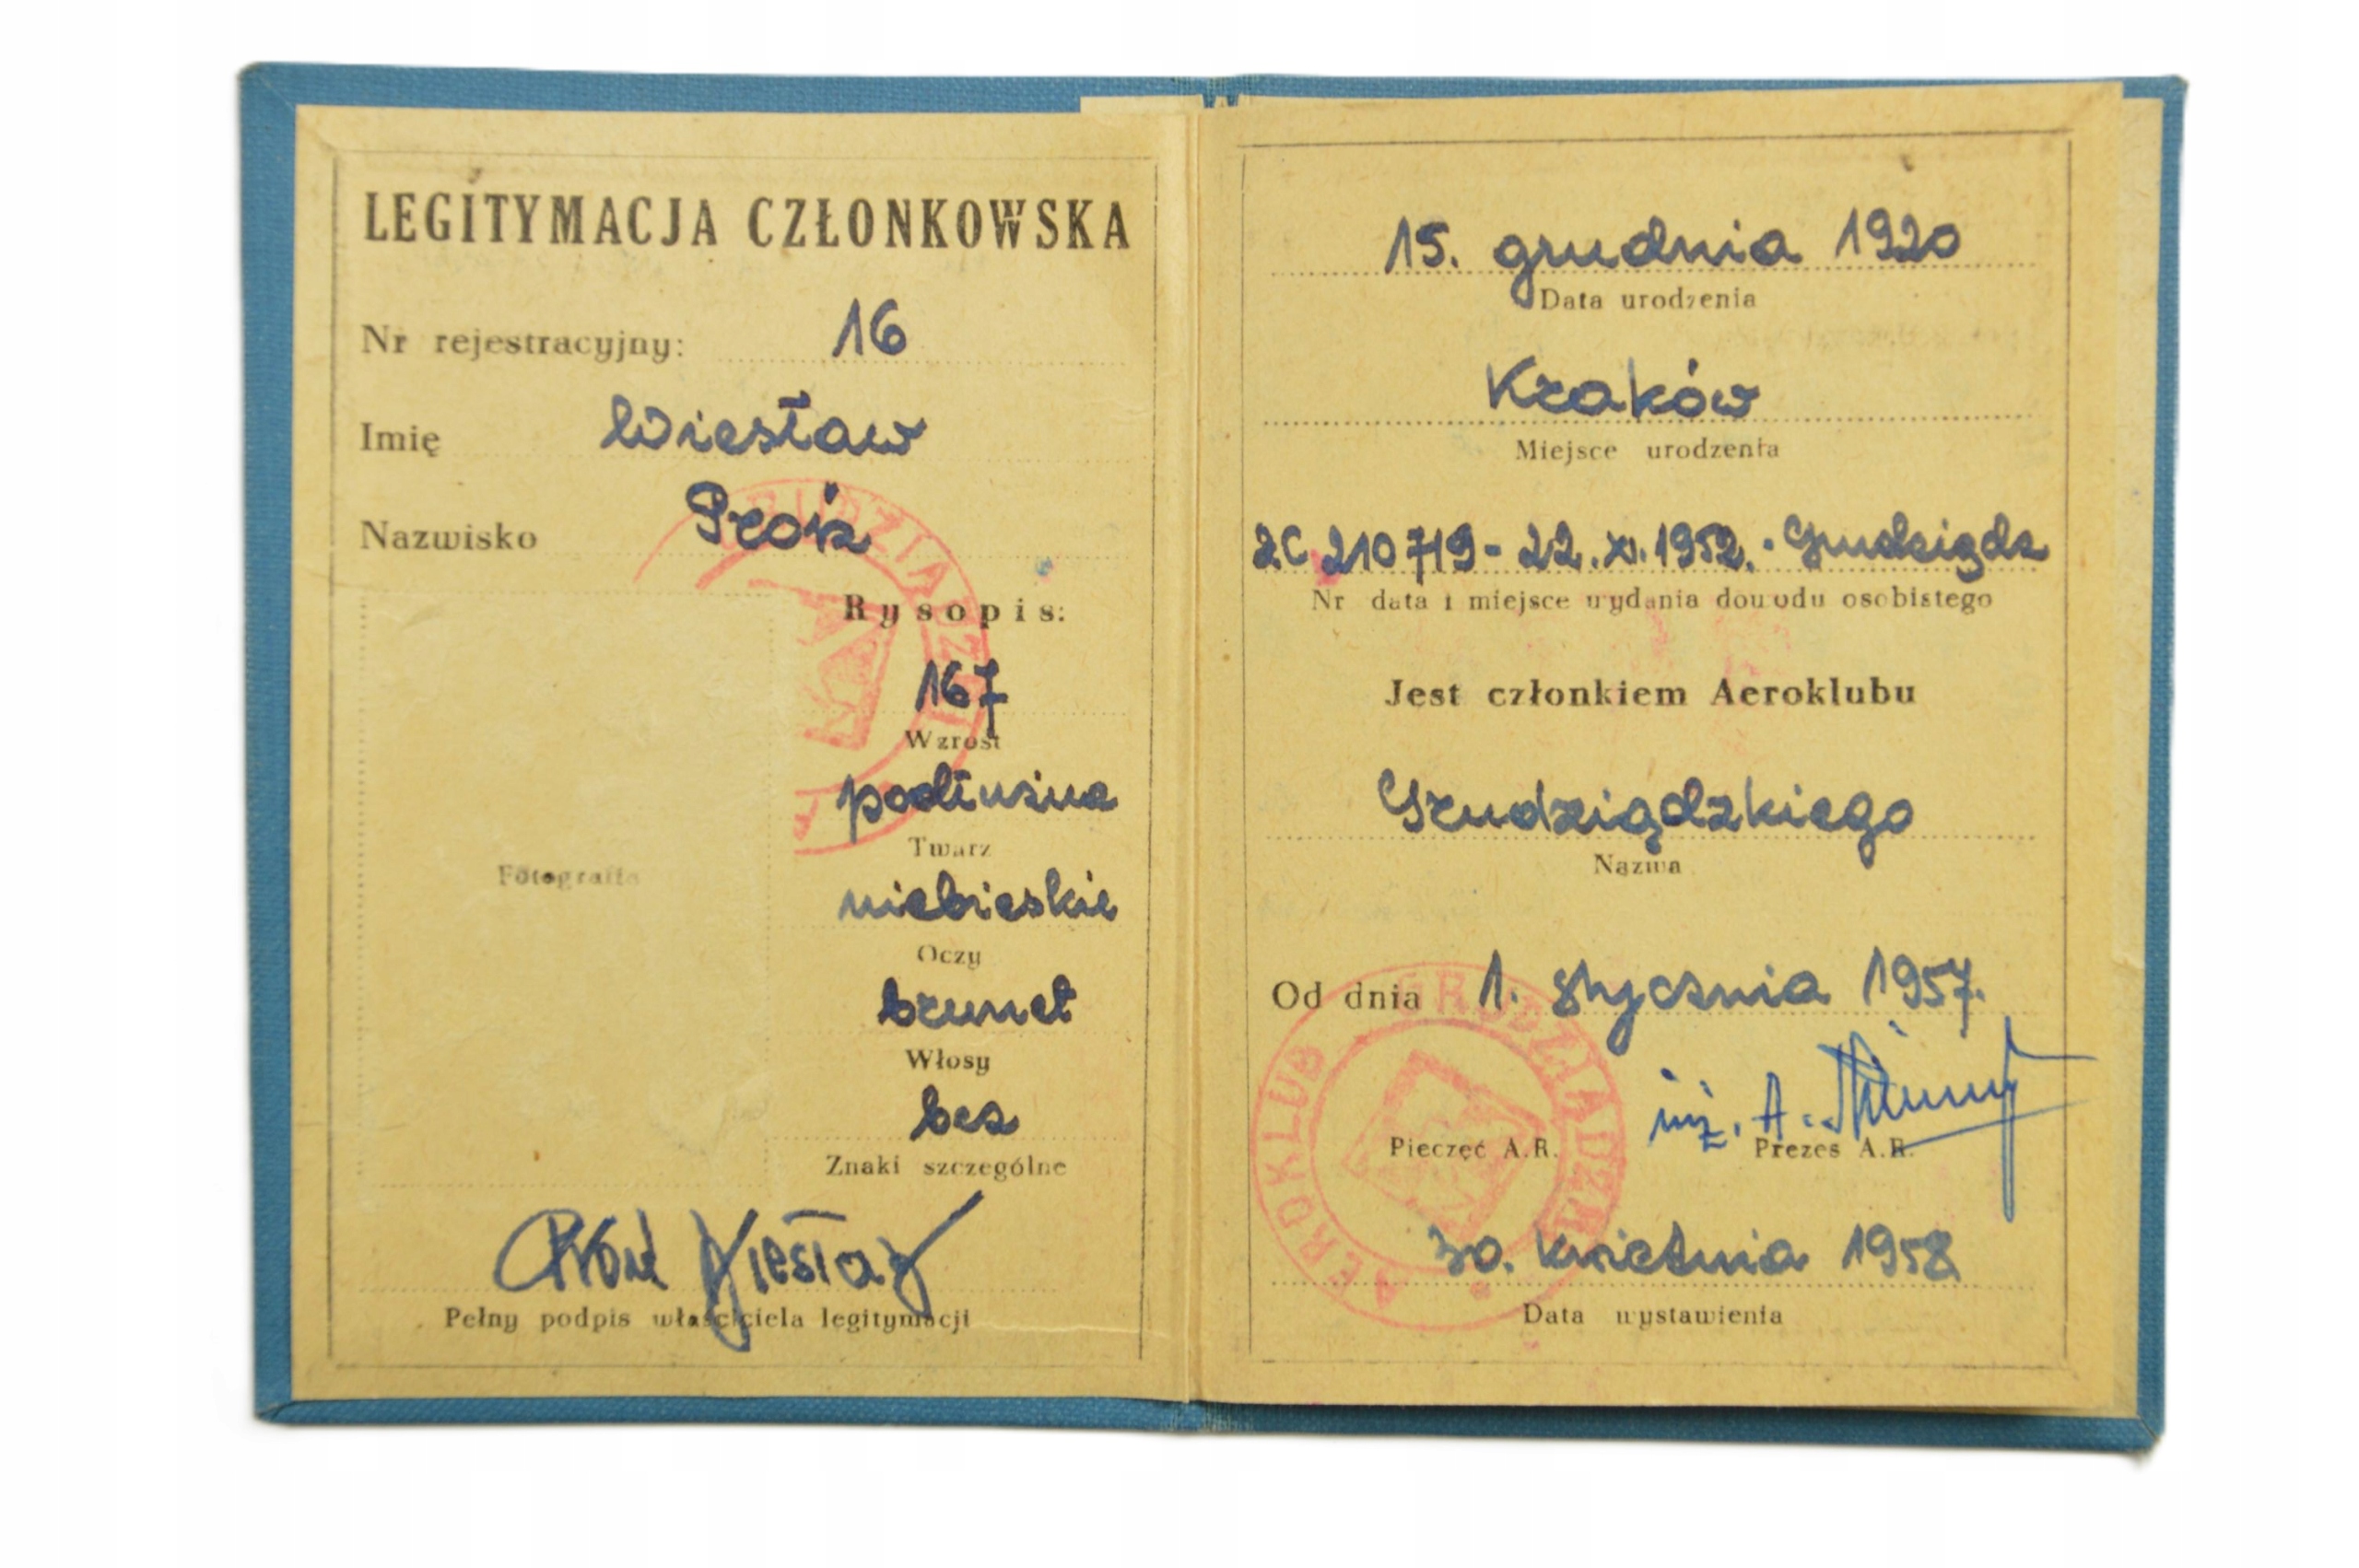 LEGITYMACJA CZŁONKOWSKA
Nr rejestracyjny: 16
Imię Wiesław
Nazwisko
Fotografia
Rysopis:
167
Wzrost
podłużna
Twarz
niebieskie
Oczy
brunet
Włosy
bez
Znaki szczególne
Wiesław
Pełny podpis właściciela legitymacji
15. grudnia 1920
Data urodzenia
Kraków
Miejsce urodzenia
210719 - 22.XI.1952. - Grudziądz
Nr data i miejsce wydania dowodu osobistego
Jest członkiem Aeroklubu
Grudziądzkiego
Nazwa
Od dnia 1. stycznia 1957.
inż. A.
Pieczęć A.R. Prezes A.R.
AEROKLUB GRUDZIĄDZKI
30. kwietnia 1958
Data wystawienia